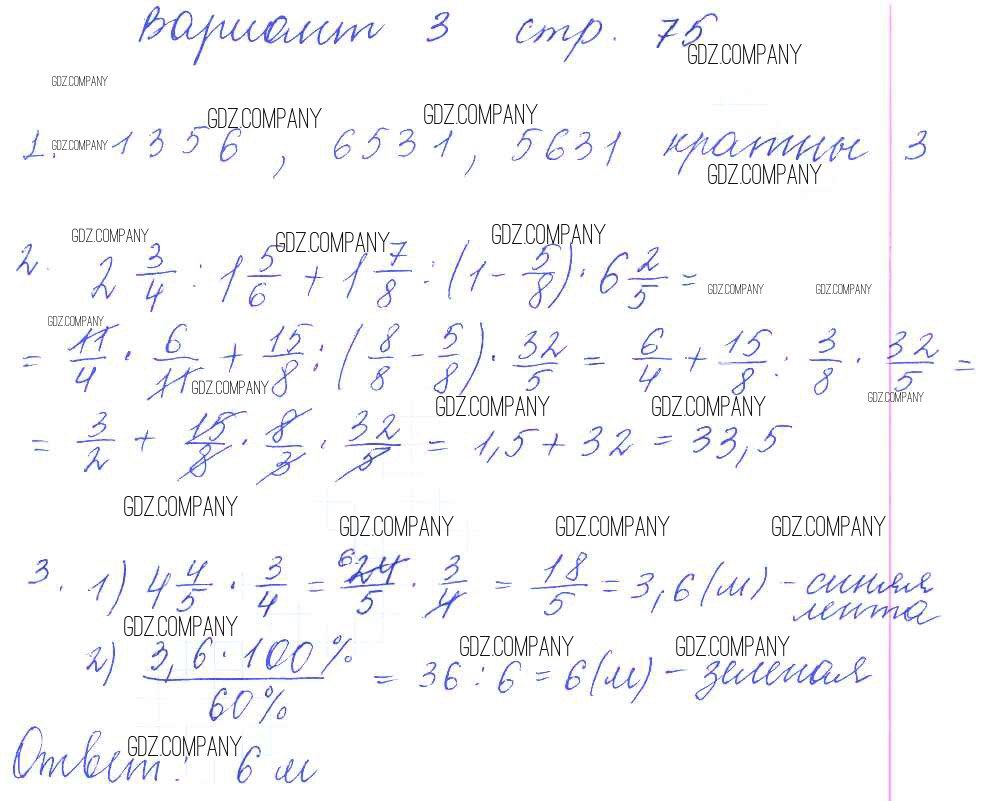 Вариант 3 стр. 75
GDZ.COMPANY
GDZ.COMPANY
GDZ.COMPANY GDZ.COMPANY
1. GDZ.COMPANY 1356, 6531, 5631 кратны 3
GDZ.COMPANY
GDZ.COMPANY GDZ.COMPANY GDZ.COMPANY
2. 2 3/4 : 1 5/6 + 1 7/8 : (1 - 5/8) · 6 2/5 =
GDZ.COMPANY GDZ.COMPANY
GDZ.COMPANY
= 11/4 · 6/11 + 15/8 : (8/8 - 5/8) · 32/5 = 6/4 + 15/8 : 3/8 · 32/5 =
GDZ.COMPANY GDZ.COMPANY
GDZ.COMPANY GDZ.COMPANY
= 3/2 + 15/8 · 8/3 · 32/5 = 1,5 + 32 = 33,5
GDZ.COMPANY
GDZ.COMPANY GDZ.COMPANY GDZ.COMPANY
3. 1) 4 4/5 · 3/4 = 6 24/5 · 3/4 = 18/5 = 3,6 (м) - синяя
лента
GDZ.COMPANY
GDZ.COMPANY GDZ.COMPANY
2) 3,6 · 100% / 60% = 36 : 6 = 6 (м) - зеленая
GDZ.COMPANY
Ответ: 6 м